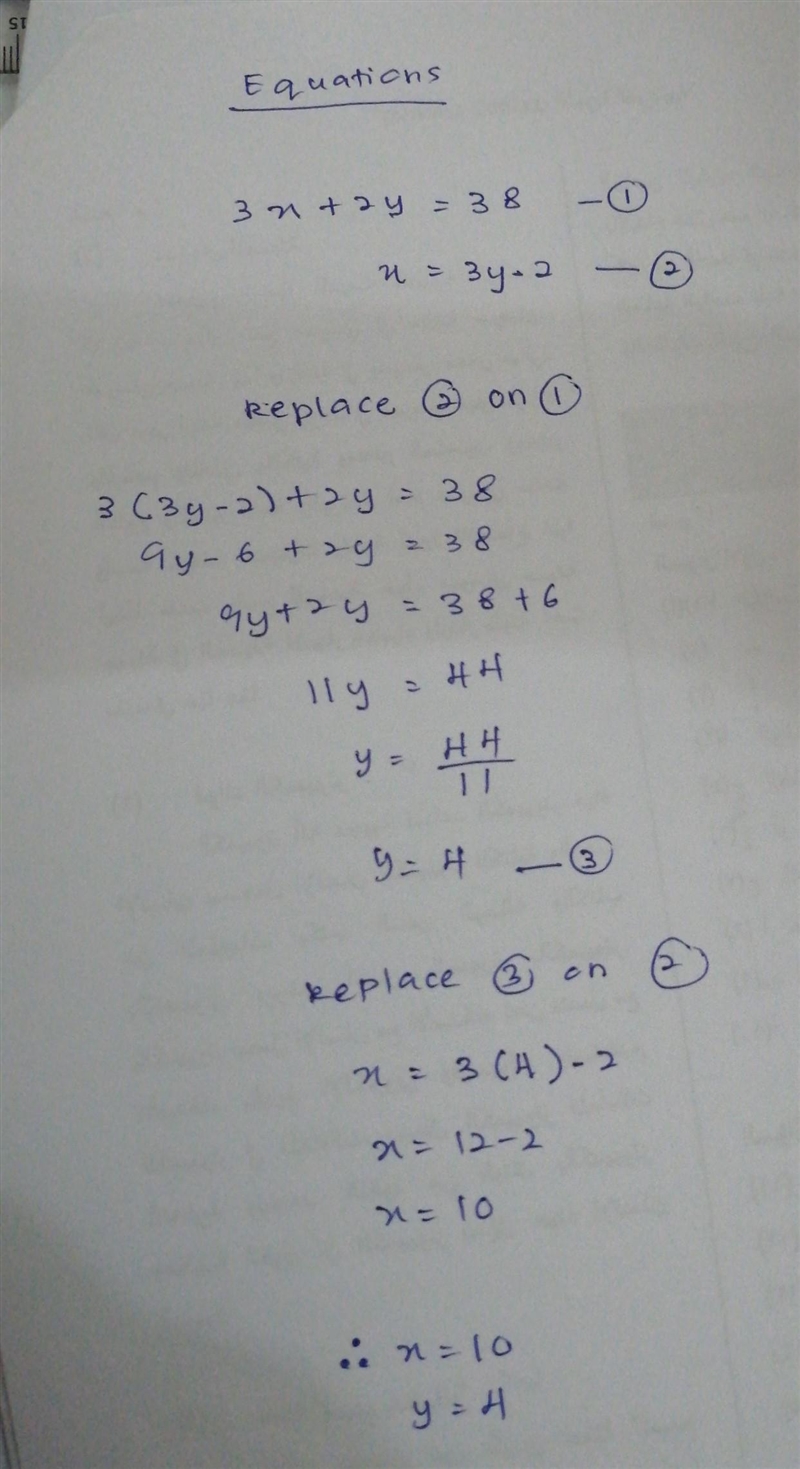 15
Equations
3x + 2y = 38 — ①
x = 3y - 2 — ②
Replace ② on ①
3(3y-2) + 2y = 38
9y - 6 + 2y = 38
9y + 2y = 38 + 6
11y = 44
y = 44/11
y = 4 — ③
Replace ③ on ②
x = 3(4) - 2
x = 12 - 2
x = 10
∴ x = 10
y = 4